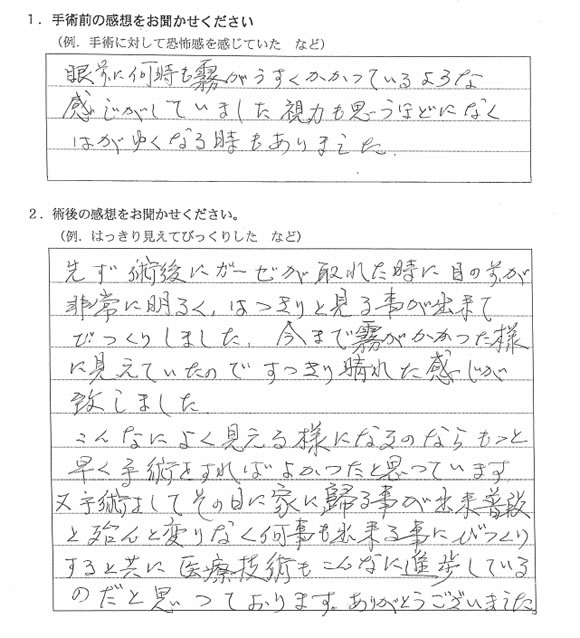 1．手術前の感想をお聞かせください
（例．手術に対して恐怖感を感じていた　など）
眼前に何時も霧がうすくかかっているような
感じがしていました視力も思うほどになく
はがゆくなる時もありました.
2．術後の感想をお聞かせください。
（例．はっきり見えてびっくりした　など）
先ず術後にガーゼが取れた時に目の前が
非常に明るく、はっきりと見る事が出来て
びっくりしました. 今まで霧がかかった様
に見えていたのですっきり晴れた感じが
致しました
こんなによく見える様になるのならもっと
早く手術をすればよかったと思っています
又手術をしてその日に家に歸る事が出来普段
と殆んと変りなく何事も出来る事にびっくり
すると共に医療技術もこんなに進歩している
のだと思っております。ありがとうございました